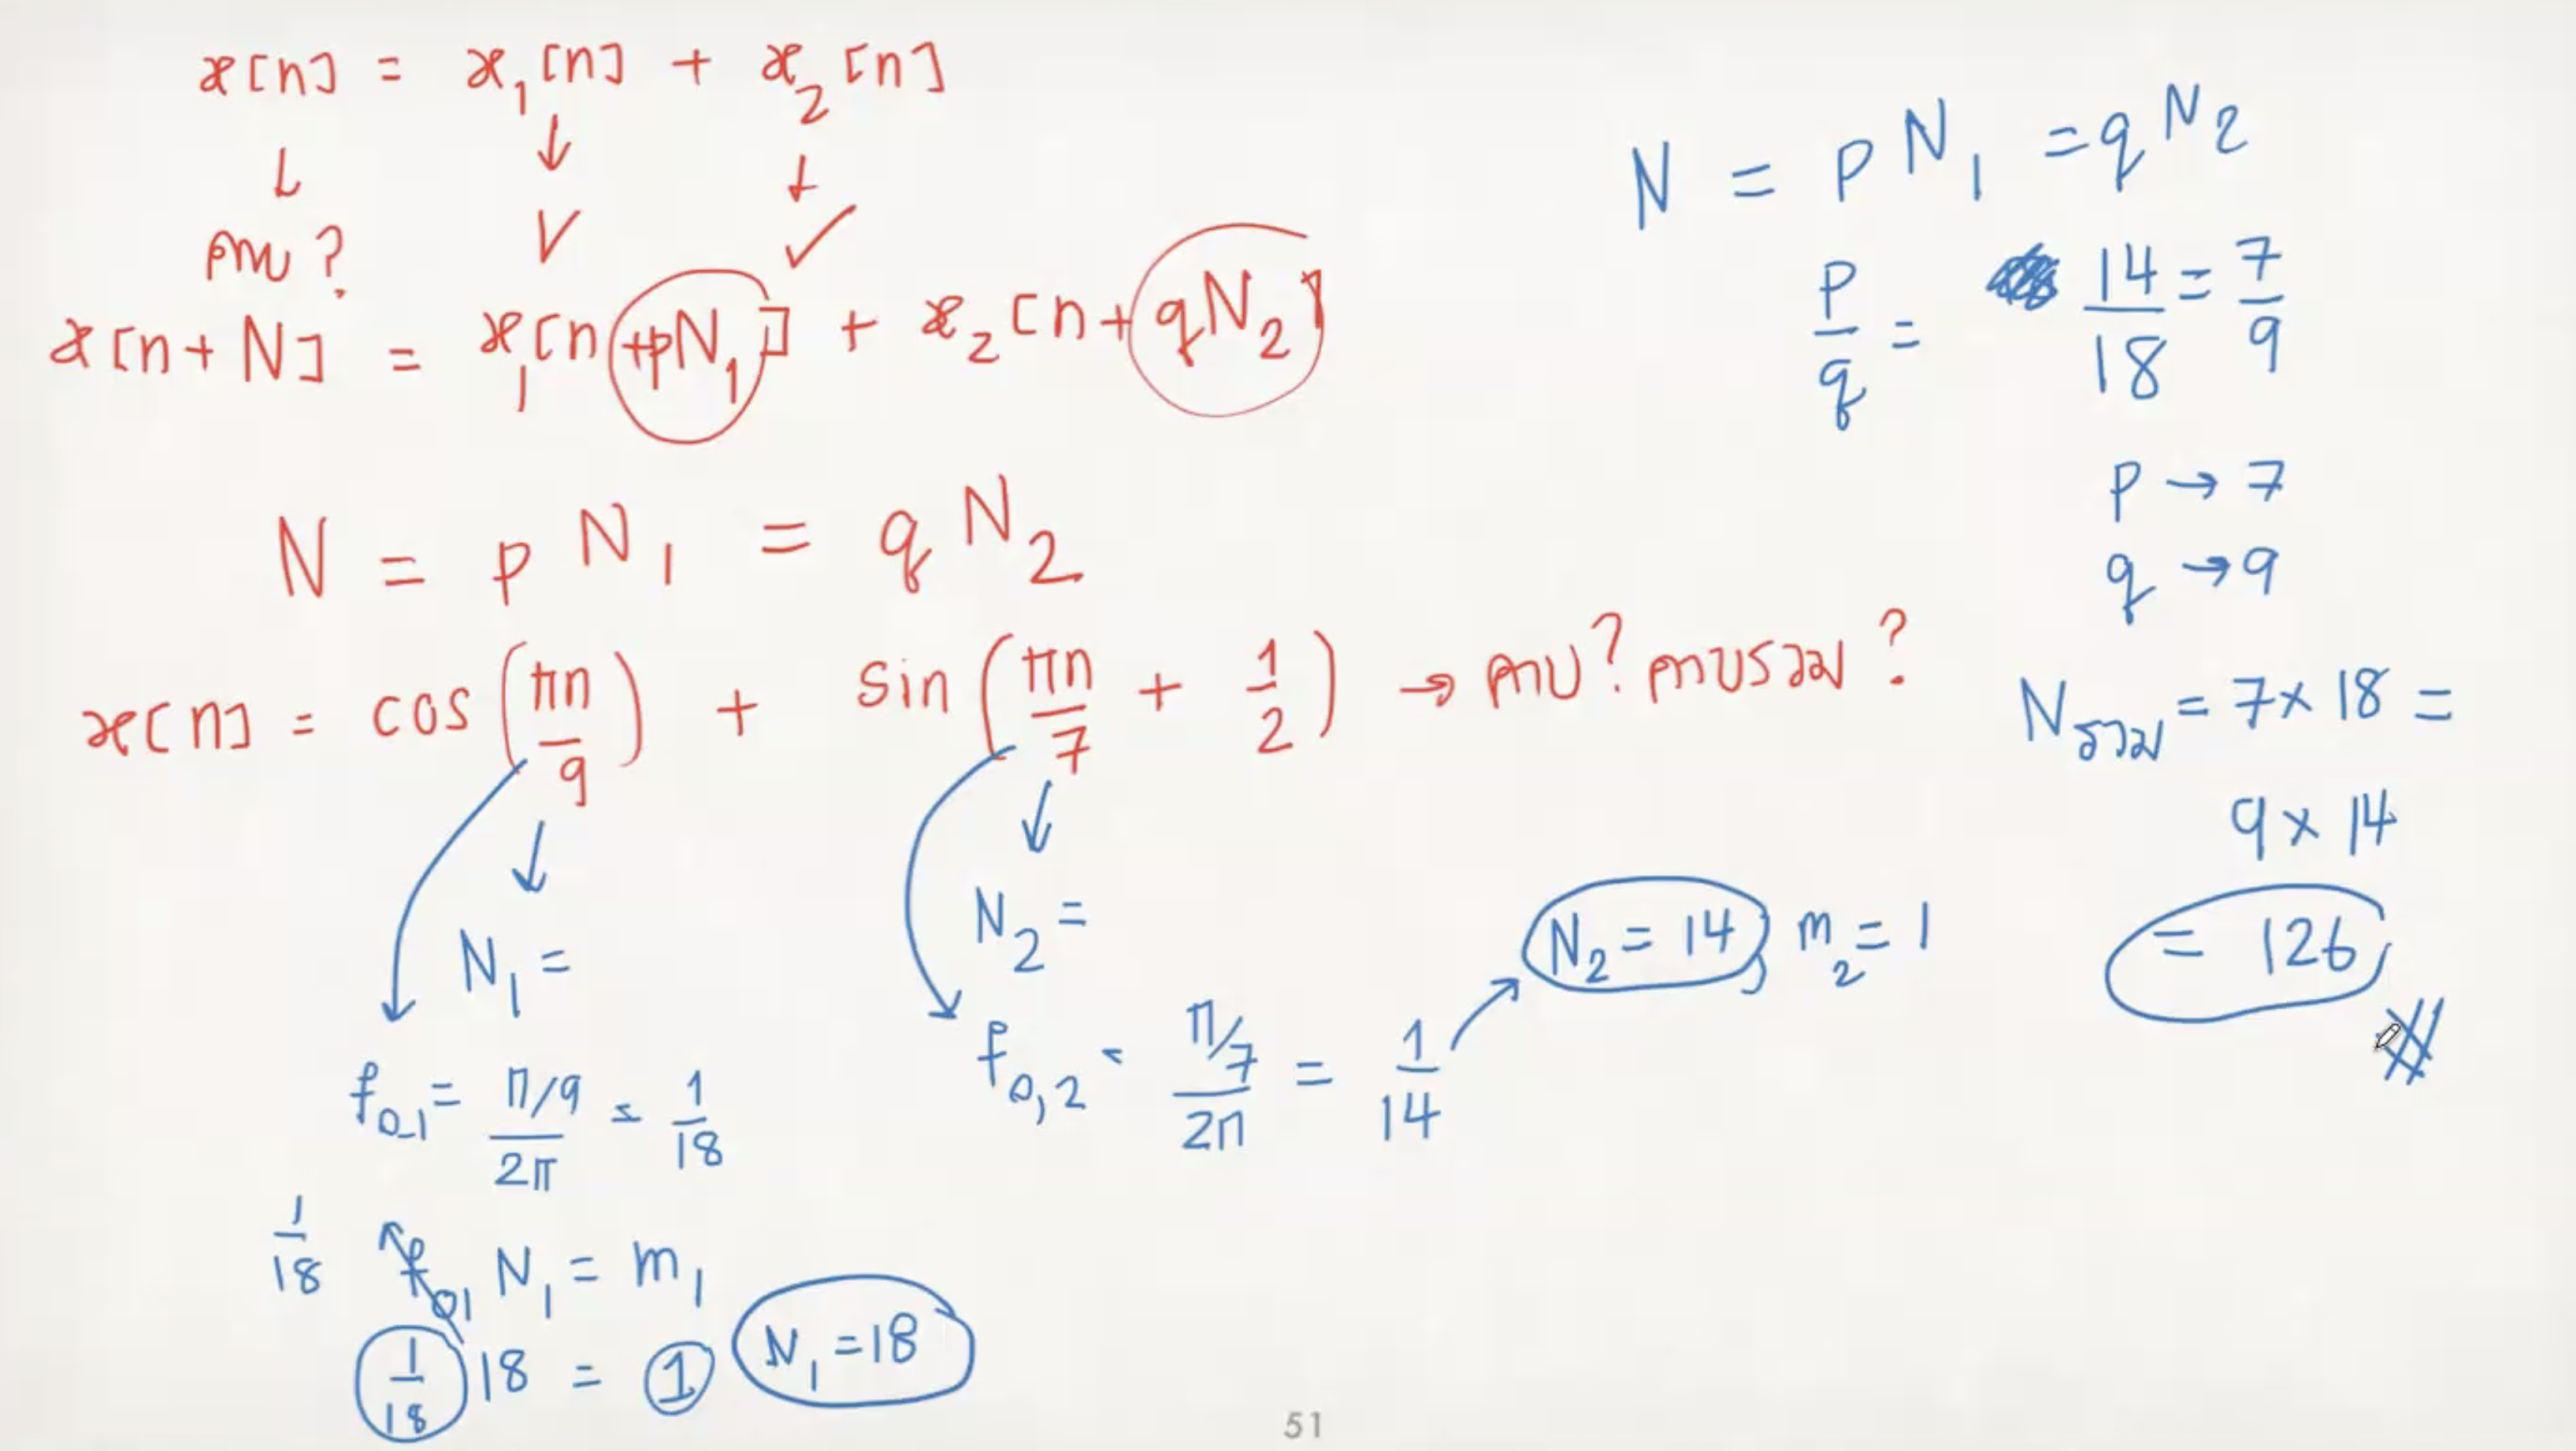 x[n] = x₁[n] + x₂[n]
คาบ?
x[n+N] = x₁[n+pN₁] + x₂[n+qN₂]
N = pN₁ = qN₂
x[n] = cos(πn/9) + sin(πn/7 + 1/2) → คาบ? คาบรวม?
N₁ =
f₀,₁ = (π/9)/(2π) = 1/18
1/18
f₀₁ N₁ = m₁
(1/18) 18 = 1
N₁ = 18
N₂ =
f₀,₂ = (π/7)/(2π) = 1/14
N₂ = 14, m₂ = 1
N = pN₁ = qN₂
p/q = 14/18 = 7/9
p → 7
q → 9
Nรวม = 7 × 18 =
9 × 14
= 126
51